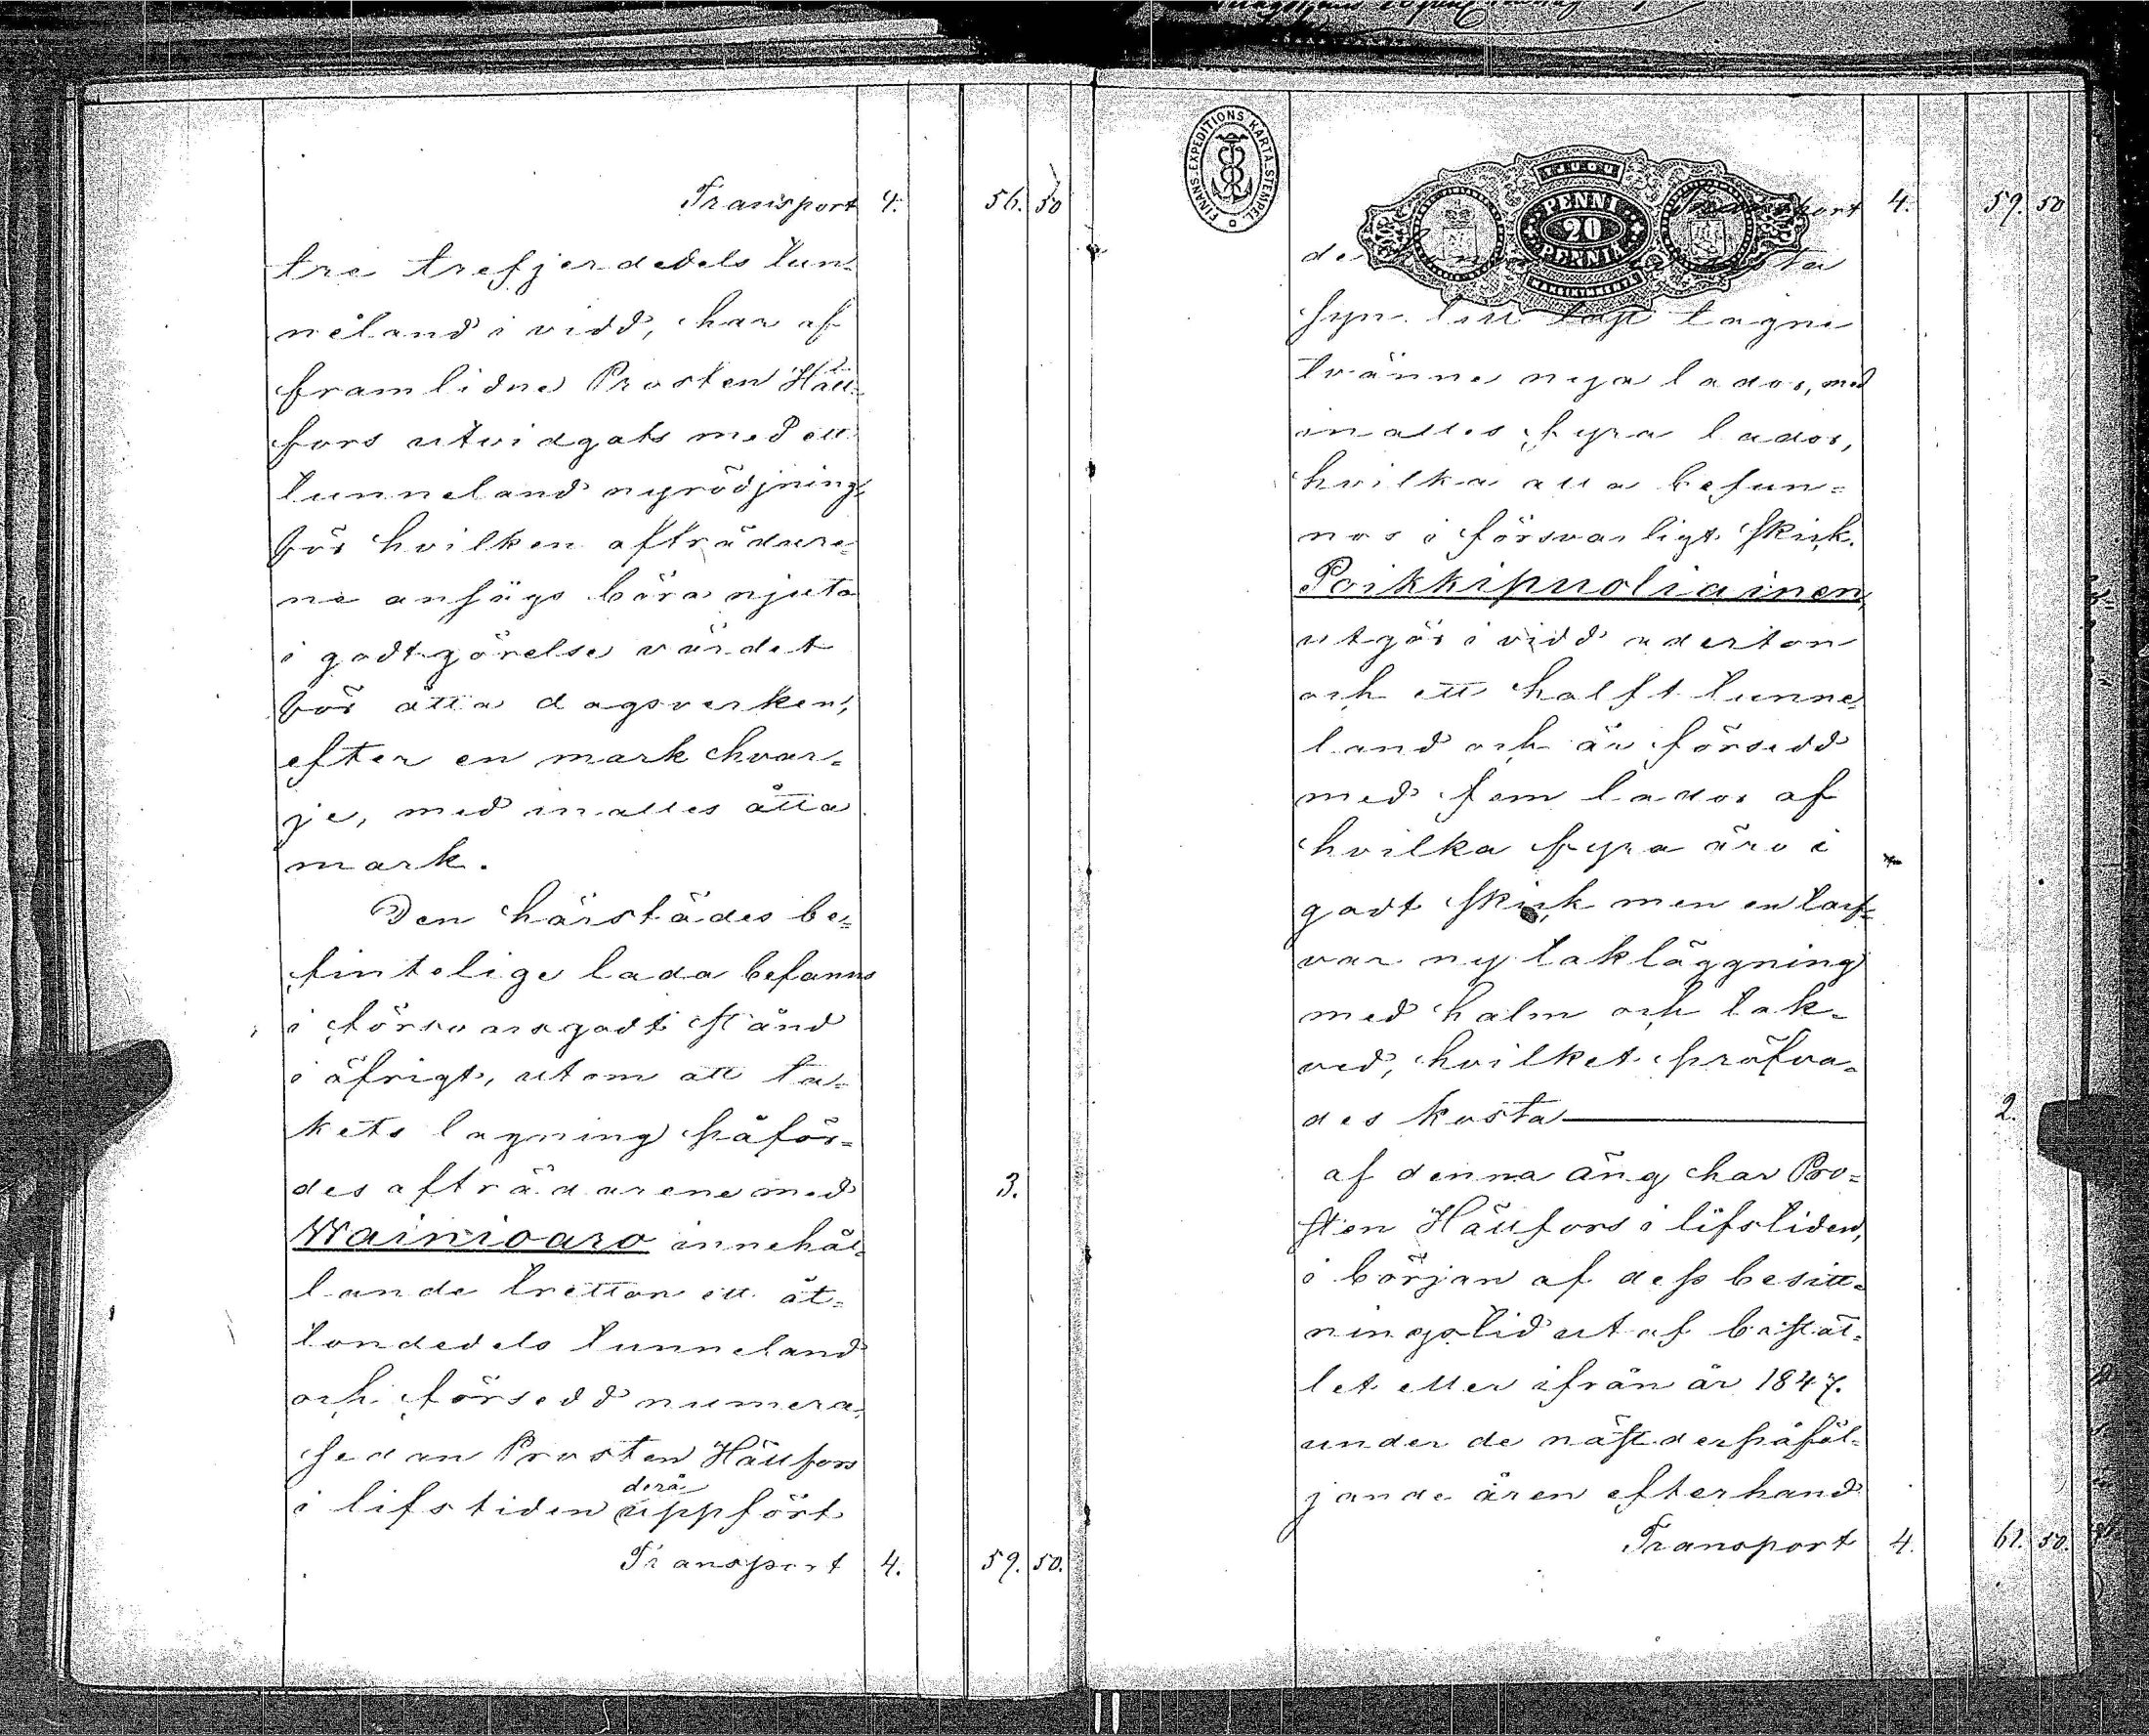 Transport 4. 56. 50
tre trefjerdedels tun-
neland i vidd, har af
framlidne Prosten Häll-
fors utvidgats med ett
tunneland nyrödjning,
för hvilken afträdare-
ne ansågs böra njuta
i godtgörelse värdet
för åtta dagsverken,
efter en mark hvar-
je, med inalles åtta
mark.
Den härstädes be-
fintelige lada befanns
i försvarsgodt stånd
i öfrigt, utom att ta-
kets lagning påför-
des afträdarene med 3.
Wainioaro innehål-
lande tretton ett åt-
tondedels tunneland
och försedd numera,
sedan Prosten Hällfors
derå
i lifstiden uppfört
Transport 4. 59. 50.
FINANS-EXPEDITIONS KARTA-STEMPEL
TJUGU
PENNI
20
PENNIÄ
KAKSIKYMMENTÄ
Transport 4. 59. 50
syn
tvänne nya lador, med
inalles fyra lador,
hvilka alla befun-
nos i försvarligt skick.
Poikkipuoliainen,
utgör i vidd aderton
och ett halft tunne-
land och är försedd
med fem lador af
hvilka fyra äro i
godt skick men en tarf-
var ny takläggning
med halm och tak-
ved, hvilket pröfva-
des kosta 2.
af denna äng har Pro-
sten Hällfors i lifstiden,
i början af dess besitt-
ningstid utaf bostäl-
let eller ifrån år 1847.
under de näst derpåföl-
jande åren efterhand
Transport 4. 61. 50.